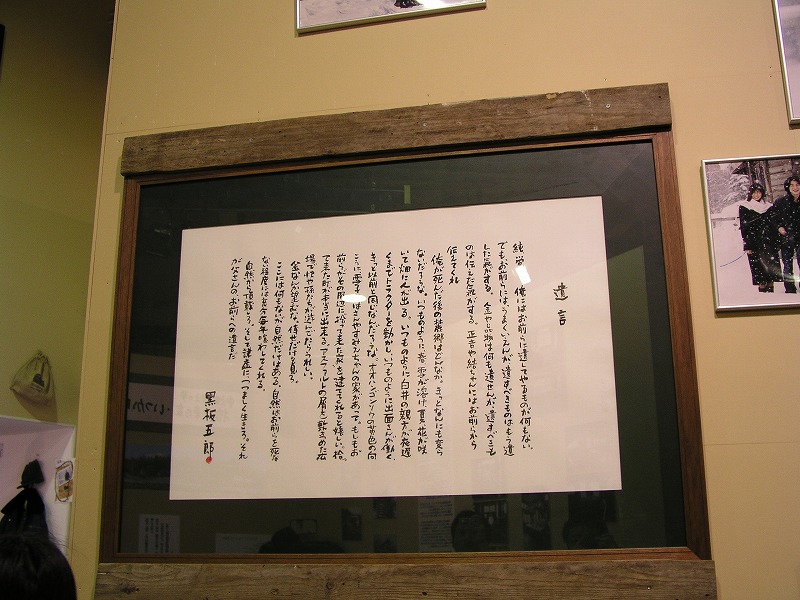 遺言
純、蛍、俺にはお前らに遺してやるものが何もない。
でも、お前らには、うまくいえんが、遺すべきものはもう遺
した気がする。金や品物は何も遺せんが、遺すべきも
のは伝えた気がする。正吉や結ちゃんにはお前らから
伝えてくれ
俺が死んだ後の麓郷はどんなか。きっとなんにも変ら
ないんだろうな。いつものように春、雪が溶け、夏、花が咲
いて畑に人が出る。いつものように白井の親方が夜遅
くまでトラクターを動かし、いつものように出面さんが働く。
きっと以前と同じなんだろうな。オオハンゴンソウの黄色の向
こうに雪子おばさんやすみえちゃんの家があって。もしもお
前らがその周辺に拾って来た家を建ててくれると嬉しい。拾っ
て来た町が本当に出来る。アスファルトの屑を敷きつめた広
場で快や孫たちが遊んでたらうれしい。
金なんか望むな。倖せだけを見ろ。
ここには何もないが自然だけはある。自然はお前らを死な
ない程度には充分毎年喰わしてくれる。
自然から頂戴しろ。そして謙虚に、つつましく生きろ。それ
が父さんのお前らへの遺言だ
黒板五郎